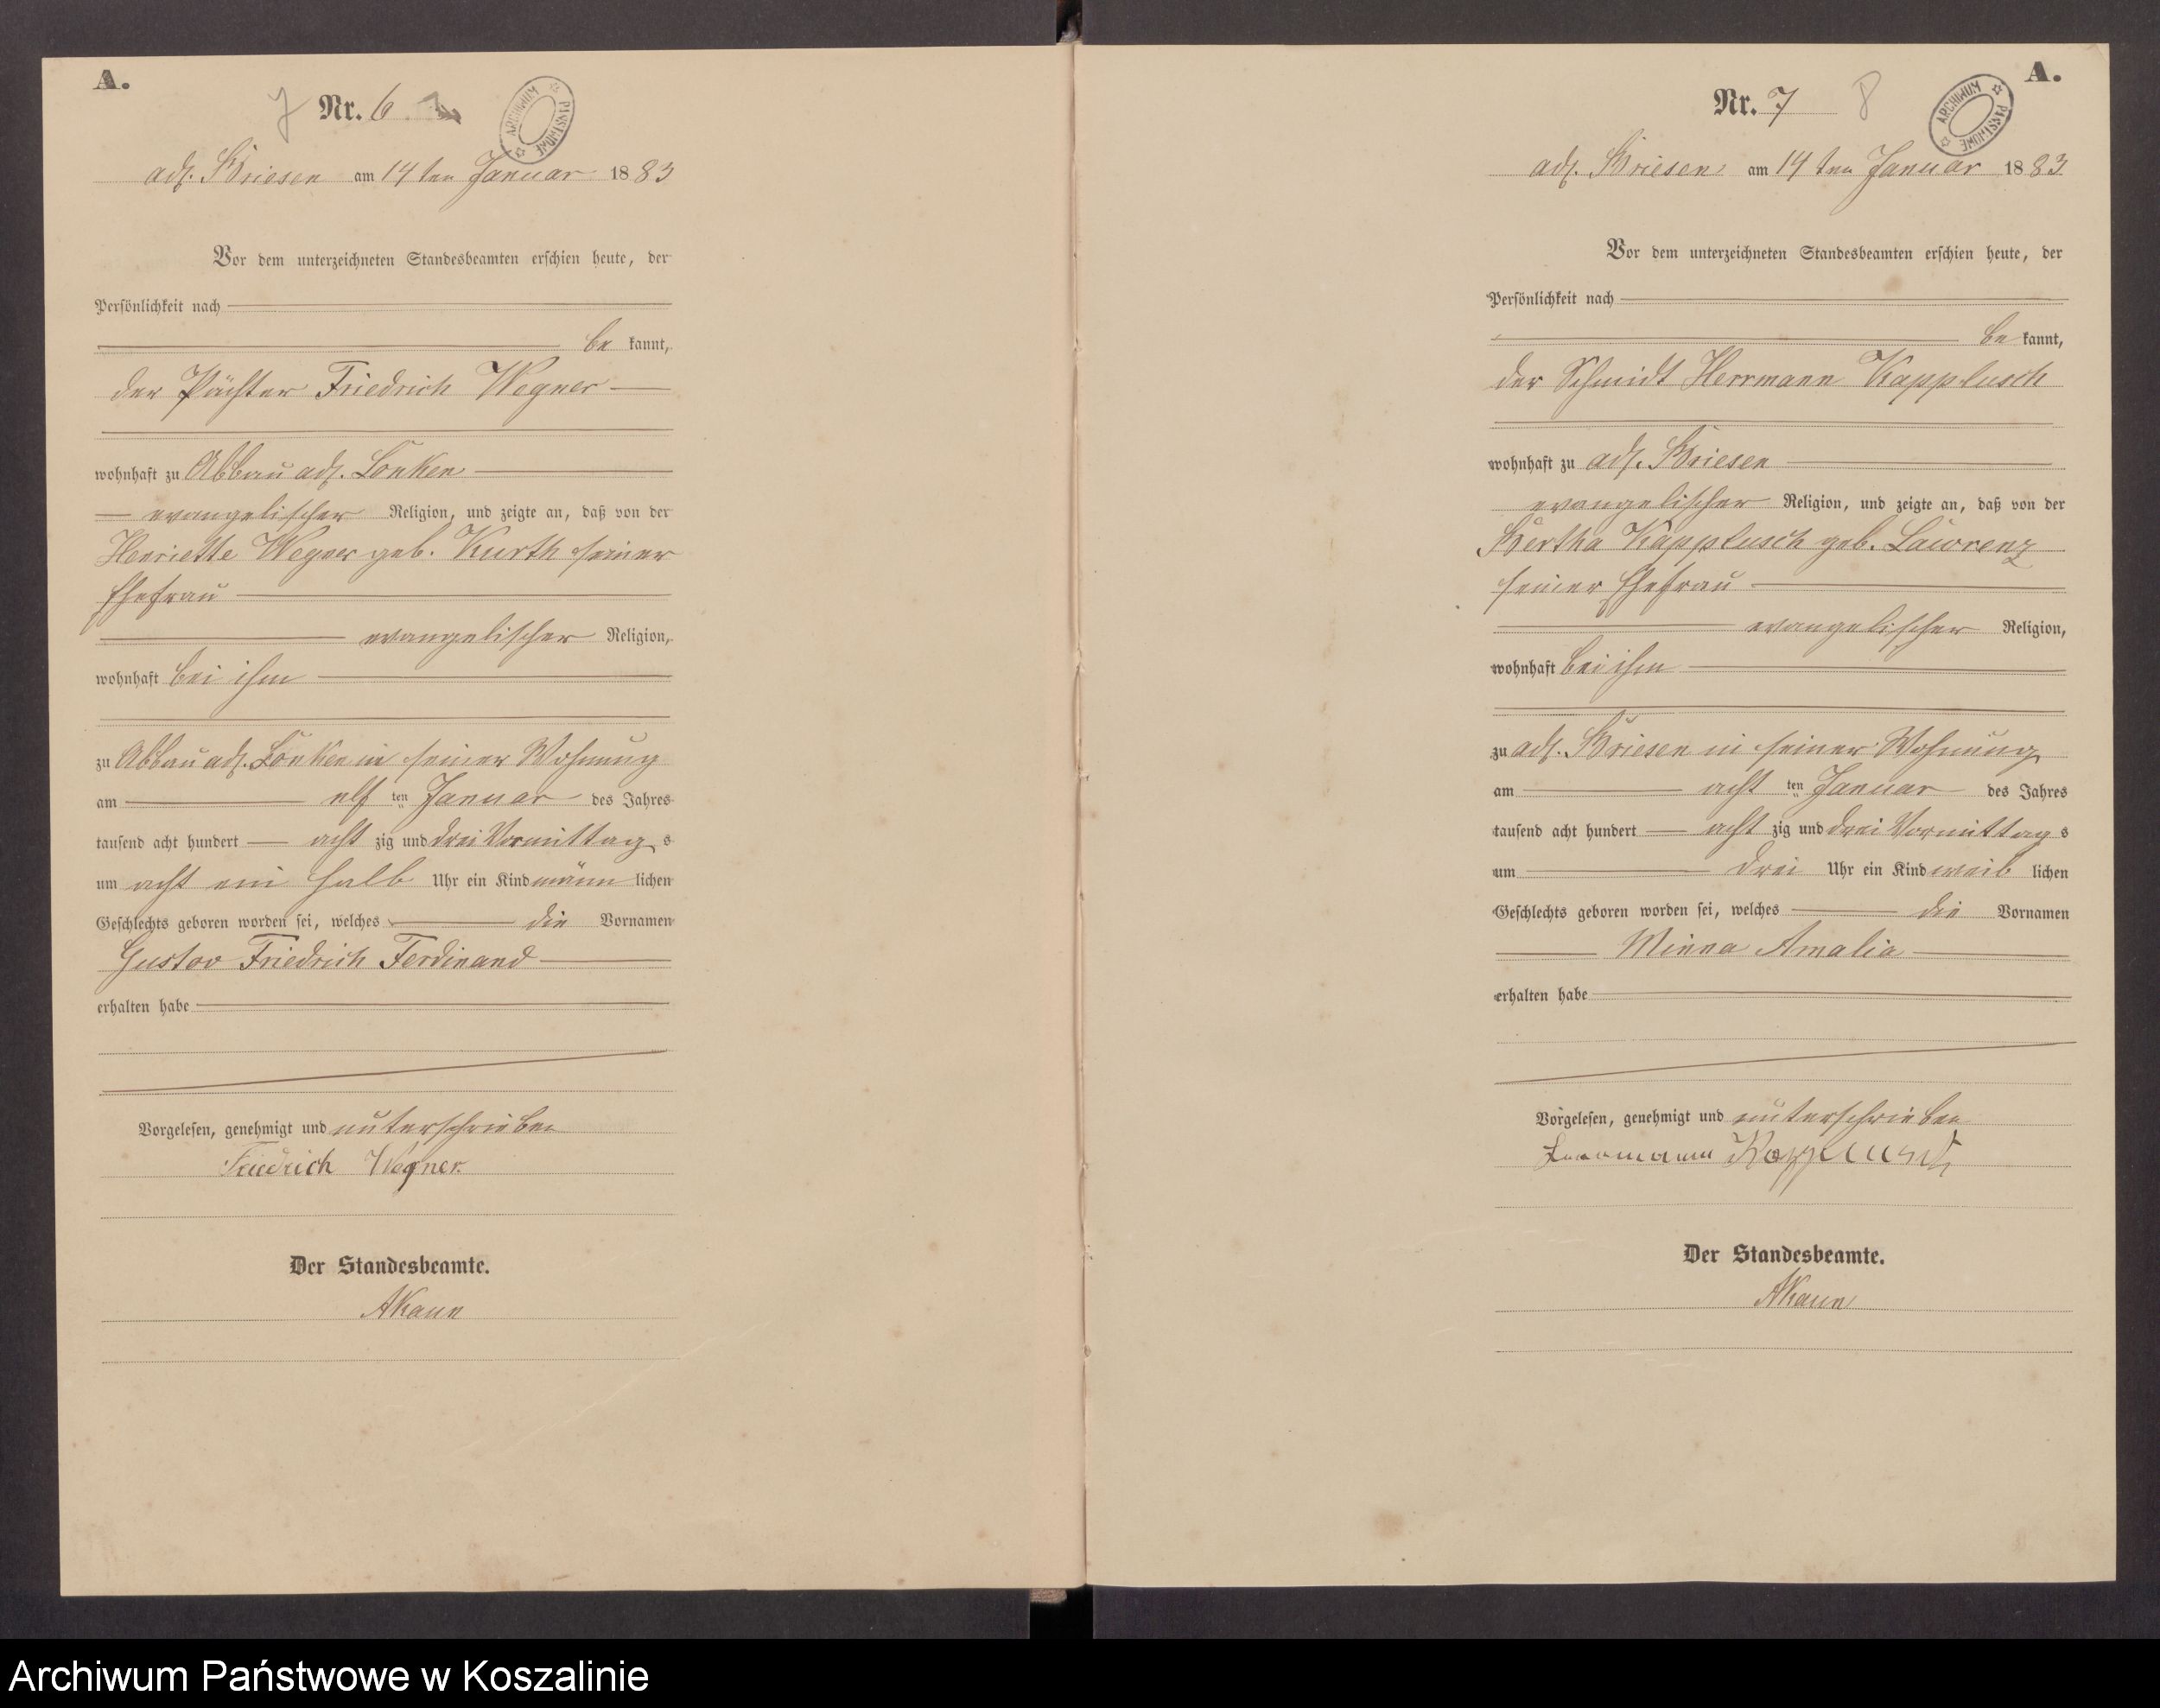 A.
7 Nr. 6.
ARCHIWUM PAŃSTWOWE
adl. Briesen am 14 ten Januar 1883
Vor dem unterzeichneten Standesbeamten erschien heute, der
Persönlichkeit nach
be kannt,
der Pächter Friedrich Wegner
wohnhaft zu Abbau adl. Lonken
evangelischer Religion, und zeigte an, daß von der
Henriette Wegner geb. Kurth seiner
Ehefrau
evangelischer Religion,
wohnhaft bei ihm
zu Abbau adl. Lonken in seiner Wohnung
am elf ten Januar des Jahres
tausend acht hundert acht zig und drei Vormittag s
um acht ein halb Uhr ein Kind männ lichen
Geschlechts geboren worden sei, welches die Vornamen
Gustav Friedrich Ferdinand
erhalten habe
Vorgelesen, genehmigt und unterschrieben
Friedrich Wegner.
Der Standesbeamte.
AKaun
A.
Nr. 7 8
ARCHIWUM PAŃSTWOWE
adl. Briesen am 14 ten Januar 1883
Vor dem unterzeichneten Standesbeamten erschien heute, der
Persönlichkeit nach
be kannt,
der Schmidt Herrmann Kapplusch
wohnhaft zu adl. Briesen
evangelischer Religion, und zeigte an, daß von der
Bertha Kapplusch geb. Lawrenz
seiner Ehefrau
evangelischer Religion,
wohnhaft bei ihm
zu adl. Briesen in seiner Wohnung
am acht ten Januar des Jahres
tausend acht hundert acht zig und drei Vormittag s
um drei Uhr ein Kind weib lichen
Geschlechts geboren worden sei, welches die Vornamen
Minna Amalia
erhalten habe
Vorgelesen, genehmigt und unterschrieben
Herrmann Kapplusch
Der Standesbeamte.
AKaun
Archiwum Państwowe w Koszalinie